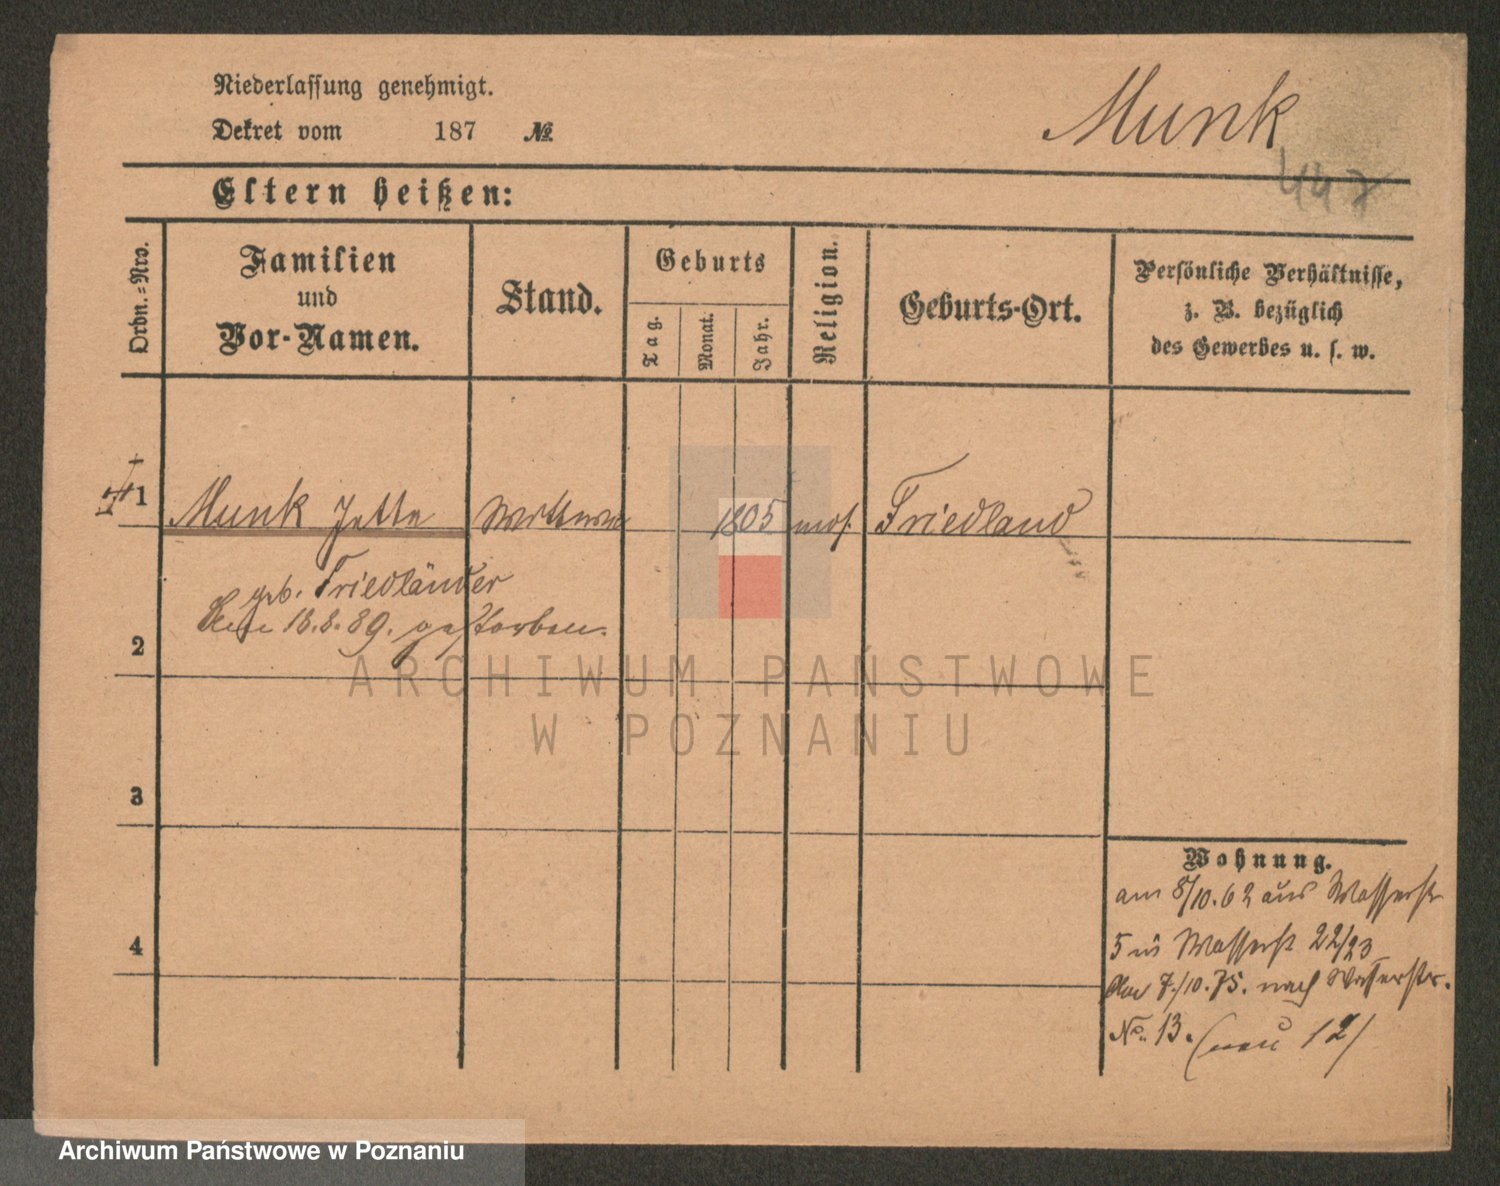 Niederlassung genehmigt.
Dekret vom 187 №
Munk
447
Eltern heißen:
Ordn.-Nro.
Familien
und
Vor-Namen.
Stand.
Geburts
Tag.
Monat.
Jahr.
Religion.
Geburts-Ort.
Persönliche Verhältnisse,
z. B. bezüglich
des Gewerbes u. s. w.
1 Munk Jette Wittwe 1805 mos. Friedland
geb. Friedländer
Am 18.8.89. gestorben.
2
3
4
Wohnung.
am 8/10.62 aus Wasserstr
5 in Wasserst 22/23
Am 7./10.75. nach Wasserstr.
No. 13. (neu 12)
ARCHIWUM PAŃSTWOWE
W POZNANIU
Archiwum Państwowe w Poznaniu